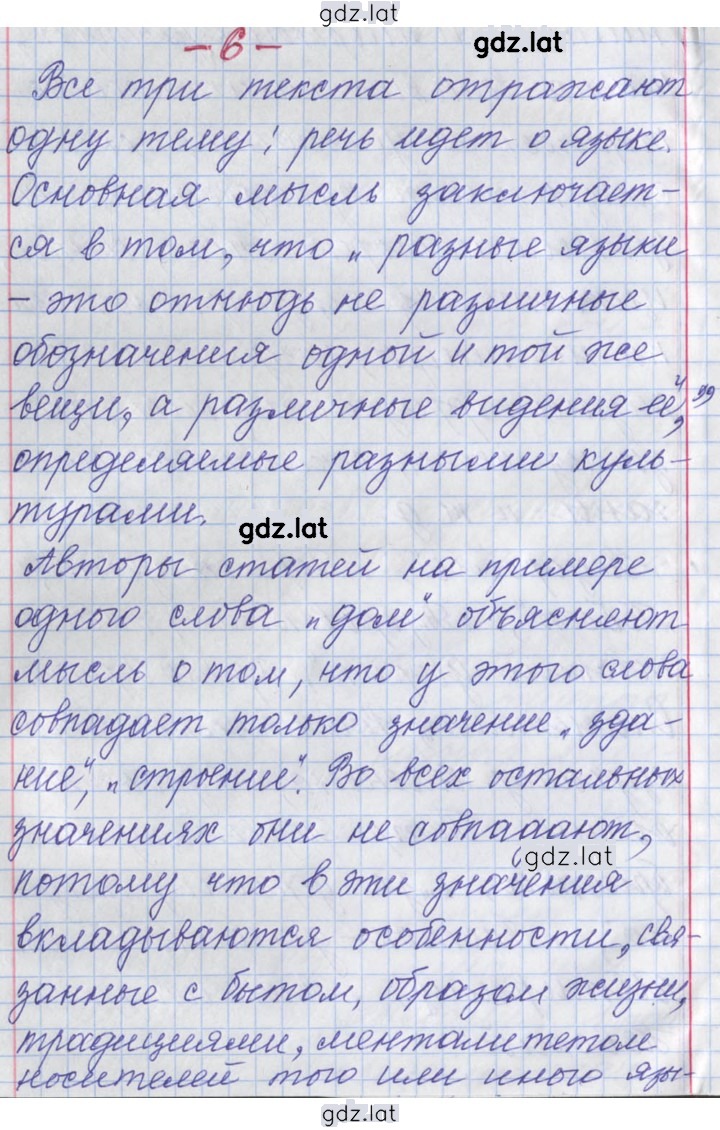 gdz.lat
- 6 -
gdz.lat
Все три текста отражают
одну тему: речь идет о языке.
Основная мысль заключает-
ся в том, что „разные языки
- это отнюдь не различные
обозначения одной и той же
вещи, а различные видения её“,
определяемые разными куль-
турами.
gdz.lat
Авторы статей на примере
одного слова „дом“ объясняют
мысль о том, что у этого слова
совпадает только значение „зда-
ние“, „строение“. Во всех остальных
значениях они не совпадают,
gdz.lat
потому что в эти значения
вкладываются особенности, свя-
занные с бытом, образом жизни,
традициями, менталитетом
носителей того или иного язы-
gdz.lat